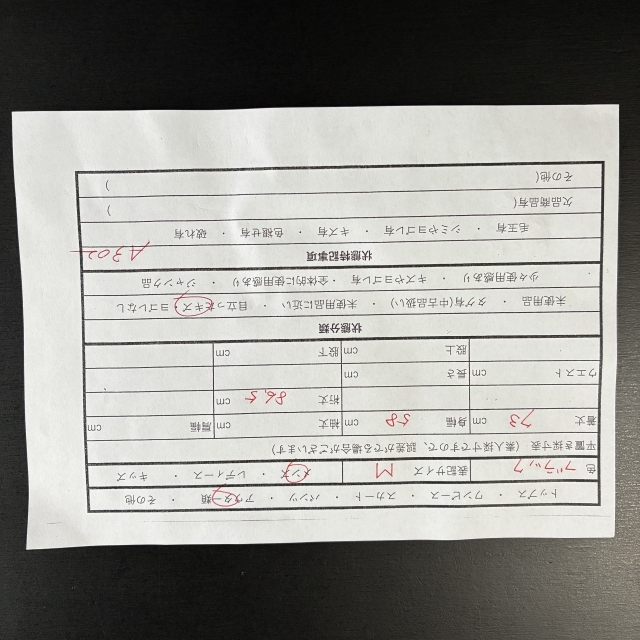 トップス ・ ワンピース ・ スカート ・ パンツ ・ アウター類 ・ その他
色 ブラック 表記サイズ M メンズ ・ レディース ・ キッズ
平置き採寸表（素人採寸ですので、誤差がでる場合がございます）
着丈 73 cm 身幅 58 cm 袖丈 cm 肩幅 cm
裄丈 86,5 cm
ウエスト cm 長さ cm
股上 cm 股下 cm
状態分類
未使用品 ・ タグ有(中古品扱い) ・ 未使用品に近い ・ 目立ったキズ・ヨゴレなし
少々使用感あり ・ キズやヨゴレ有 ・ 全体的に使用感あり ・ ジャンク品
状態特記事項 A302
毛玉有 ・ シミやヨゴレ有 ・ キズ有 ・ 色褪せ有 ・ 破れ有
欠品商品有( )
その他( )